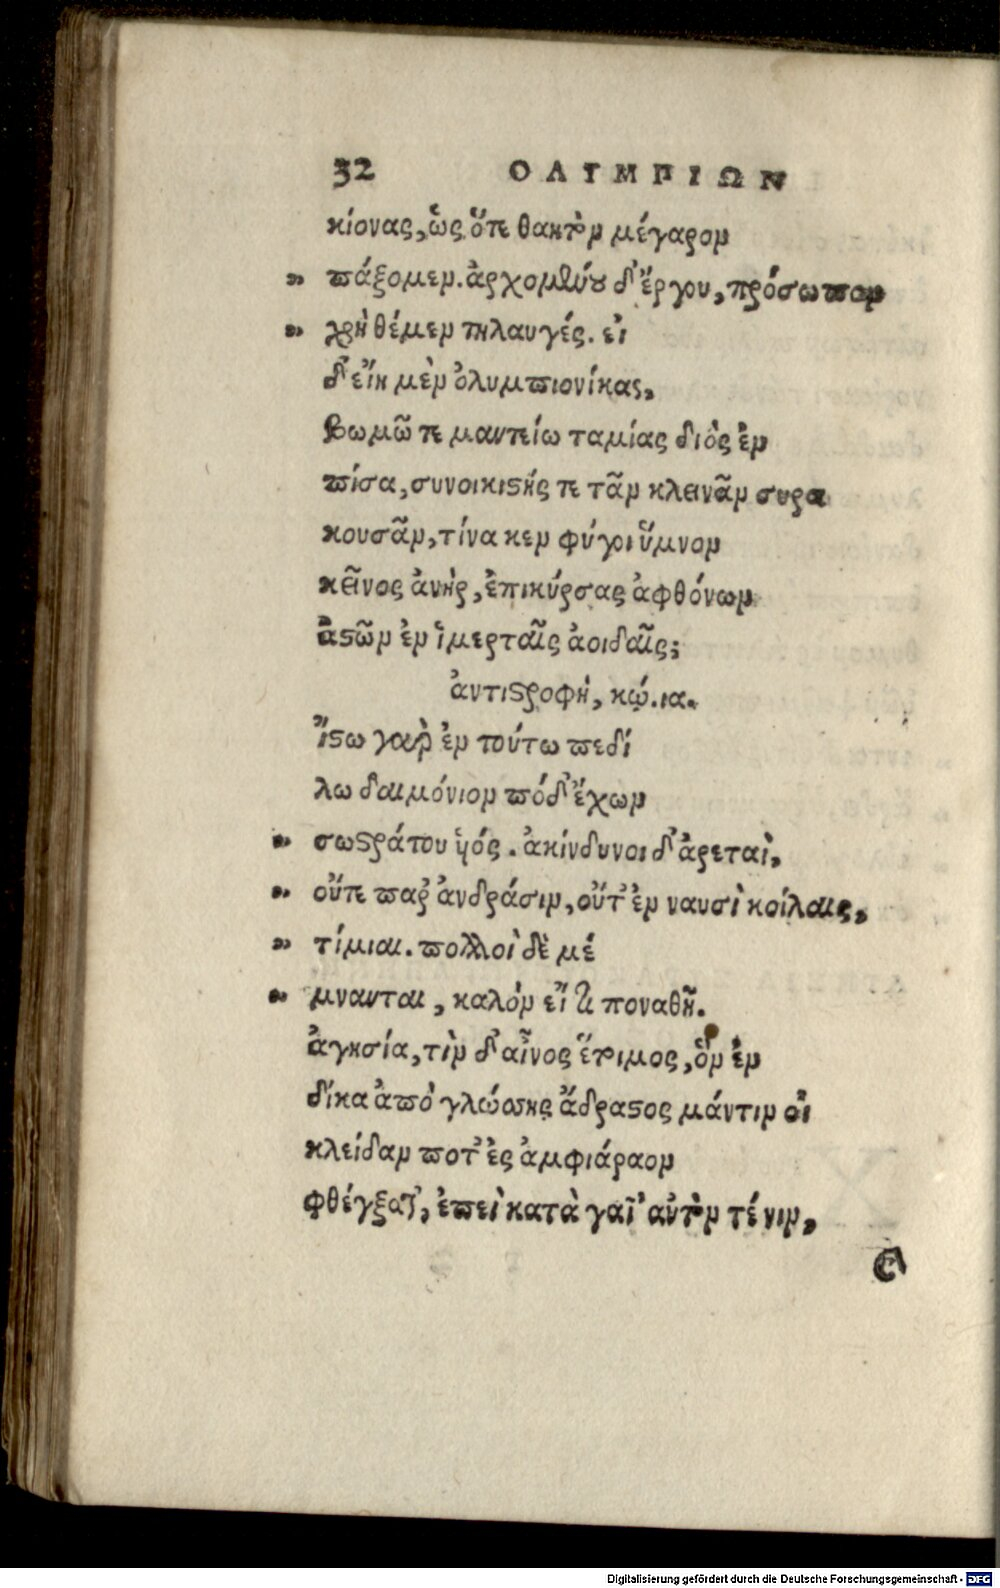 32 ΟΛΥΜΠΙΩΝ
κίονας, ὡς ὅτε θακτὸν μέγαρον
» πάξομεν. ἀρχομένου δ' ἔργου, πρόσωπον
» χρὴ θέμεν τηλαυγές. εἰ
δ' εἴη μὲν ὀλυμπιονίκας,
βωμῶ τε μαντείω ταμίας διὸς ἐν
πίσα, συνοικιστής τε τᾶν κλεινᾶν συρα
κουσᾶν, τίνα κεν φύγοι ὕμνον
κεῖνος ἀνὴρ, ἐπικύρσας ἀφθόνων
ἀστῶν ἐν ἱμερταῖς ἀοιδαῖς;
ἀντιστροφὴ, κώ. ια.
Ἴστω γὰρ ἐν τούτω πεδί
λω δαιμόνιον πόδ' ἔχων
» σωστράτου ὑός. ἀκίνδυνοι δ' ἀρεταὶ,
» οὔτε παρ' ἀνδράσιν, οὔτ' ἐν ναυσὶ κοίλαις,
» τίμιαι. πολλοὶ δὲ μέ
» μνανται, καλὸν εἴ τι ποναθῆ.
ἀγησία, τὶν δ' αἶνος ἕτοιμος, ὃν ἐν
δίκα ἀπὸ γλώσσης ἄδραστος μάντιν οἰ
κλείδαν ποτ' ἐς ἀμφιάραον
φθέγξατ', ἐπεὶ κατὰ γαῖ' αὐτὸν τέ νιν,
Digitalisierung gefördert durch die Deutsche Forschungsgemeinschaft - DFG